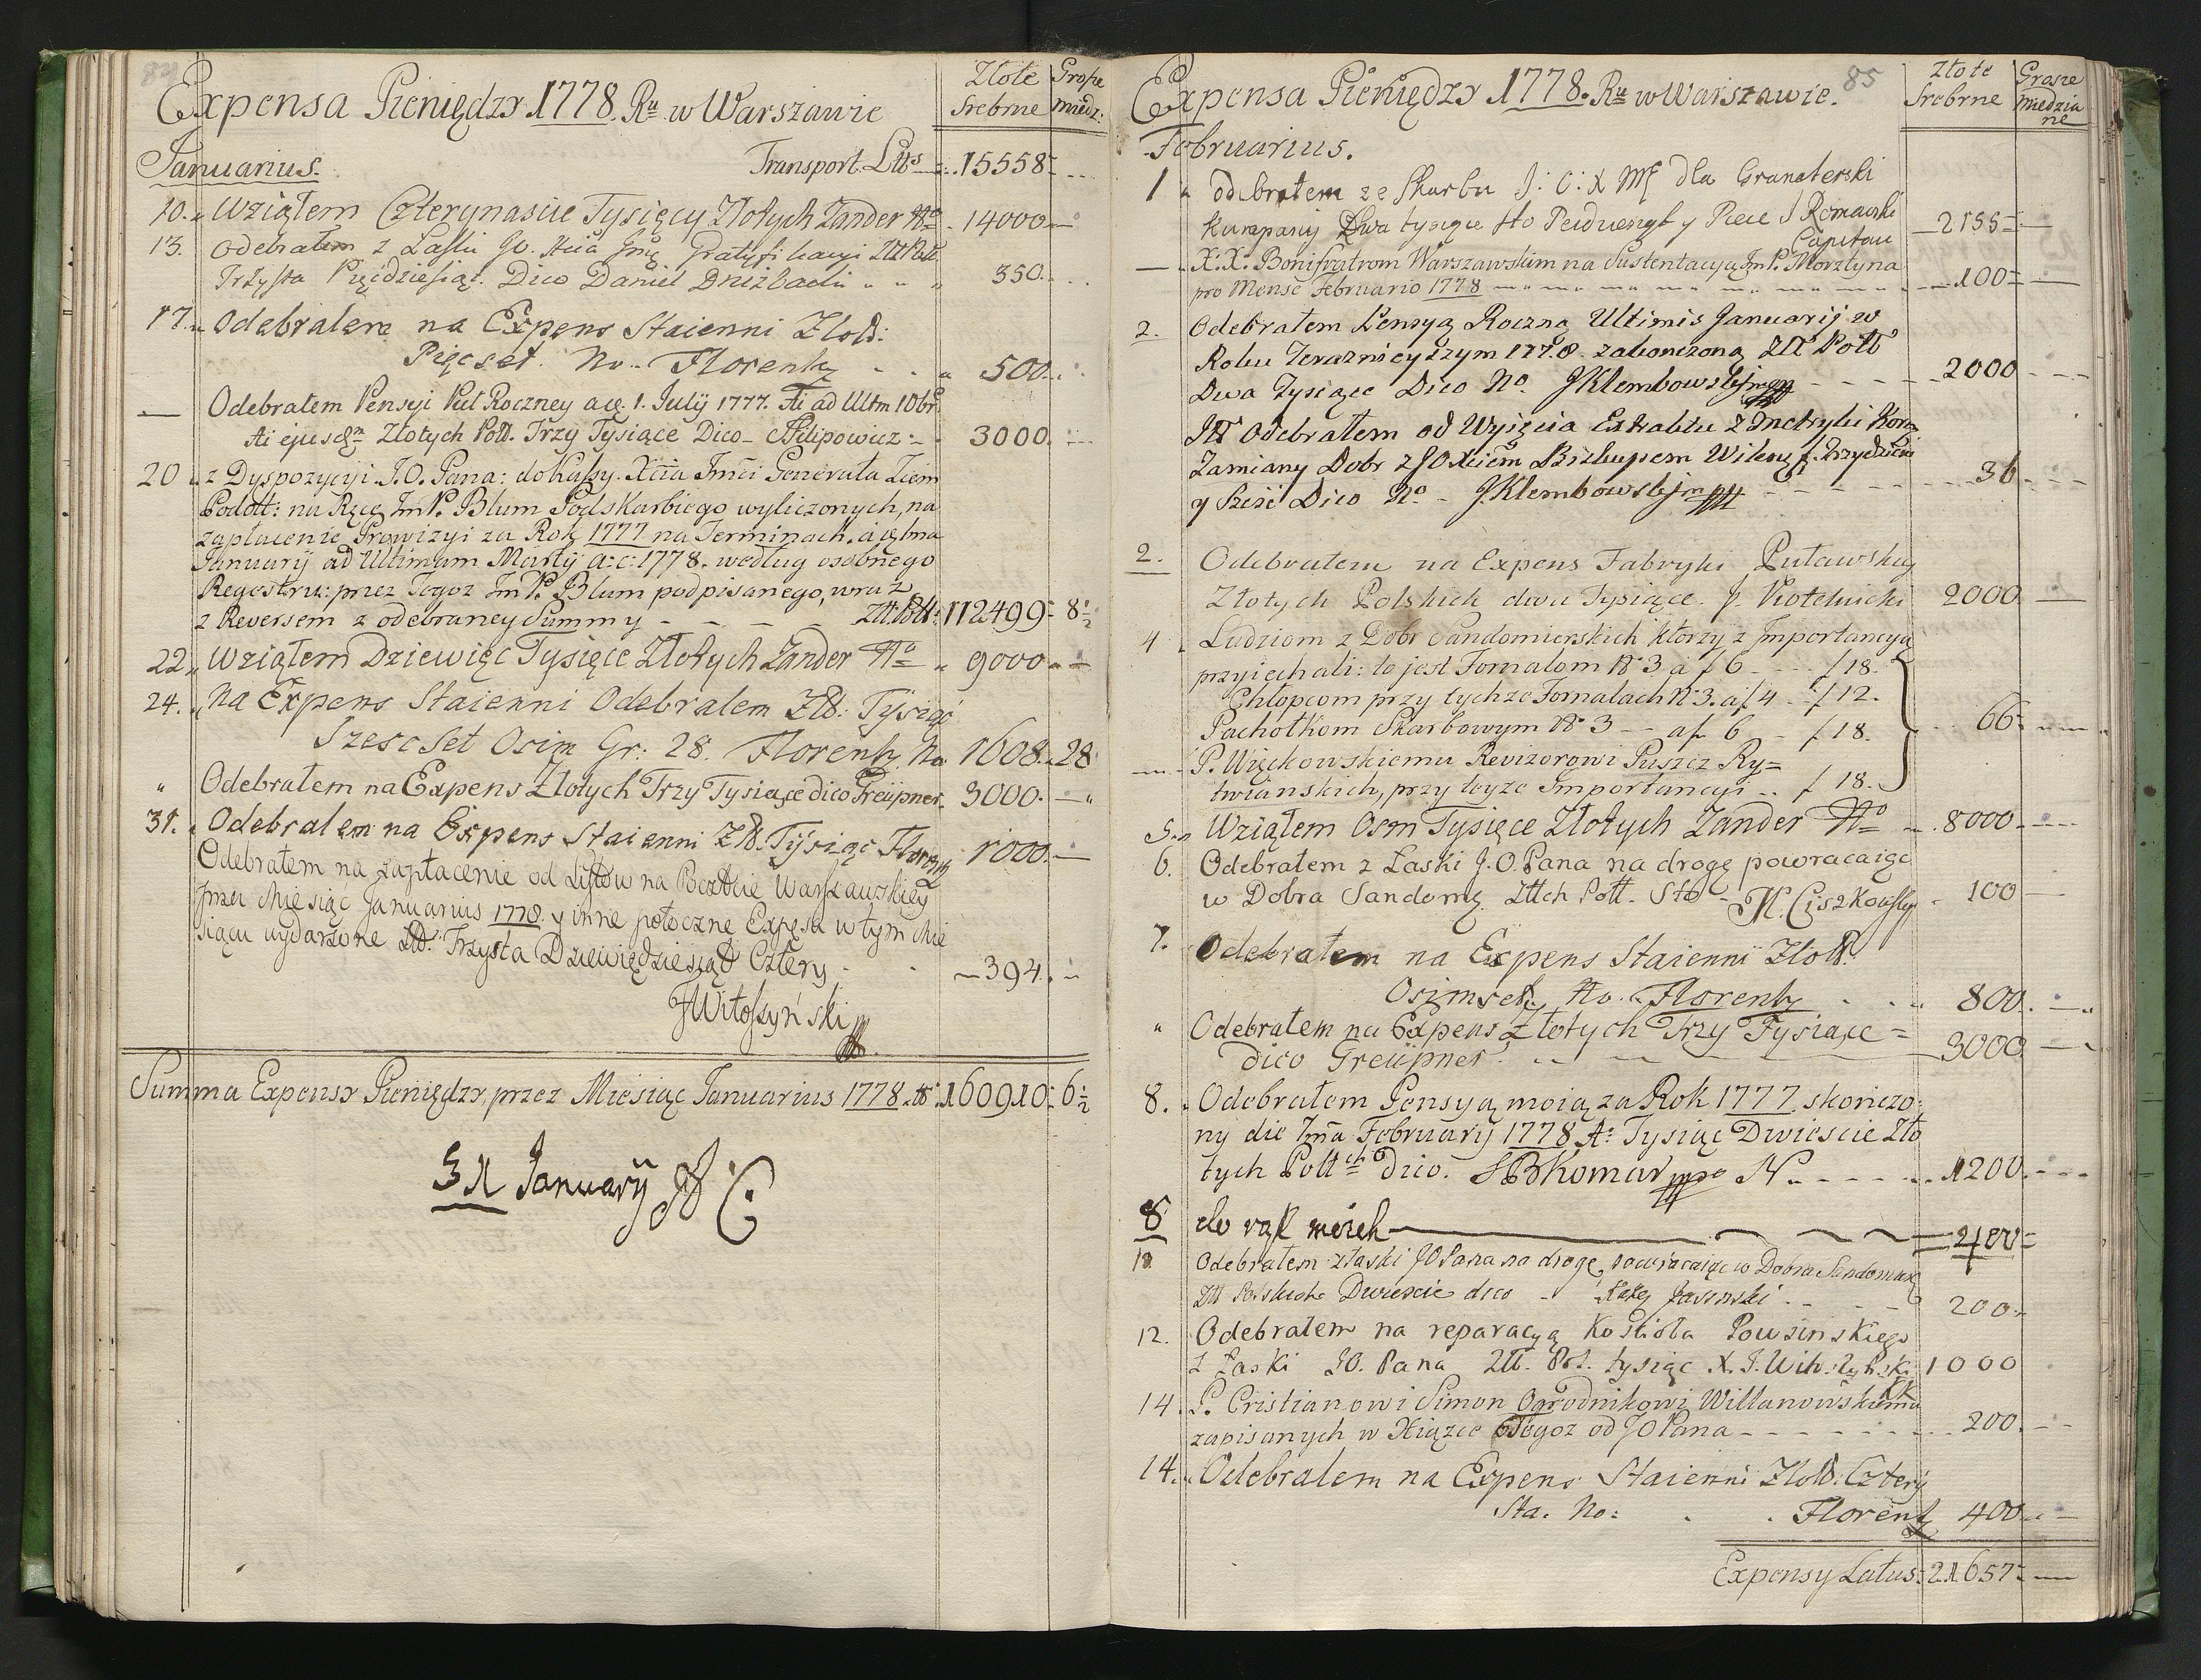 84
Expensa Pieniędzy 1778. Ru w Warszawie
Złote Srebrne
Grosze miedz:
Januarius.
Transport Ltts 15558
10. Wziąłem Czternaście Tysięcy Złotych Zander 14000
13. Odebrałem z Łaski Gratyfikacyi
Trzysta Pięcdziesiąt. Dico Daniel 350.
17. Odebralem na Expens Staienni Złott:
Pięcset. No. Florenty 500.
Odebrałem Pensyi Puł Roczney a 1. Julij 1777. Ai ad Ultm 10br
Ai ejusdm Złotych Poll. Trzy Tysiące Dico Filipowicz 3000.
20 z Dyspozycyi J.O. Pana: do Kassy Xcia Jmci Generała Ziem
Podoll: na Ręce Jm P. Blum Podskarbiego wyliczonych, na
zapłacenie Prowizyi za Rok 1777 na Terminach, a 1ma
January ad Ultimam Martij a:c: 1778. według osobnego
Regestru: przez Tegoz Jm P. Blum podpisanego, wraz
z Reversem z odebraney Summy Złt Poll: 112499 8½
22 Wziąłem Dziewięc Tysięce Złotych Zander 9000
24. Na Expens Staienni Odebralem Złł: Tysiąc
Szesc Set Osim Gr: 28. Florenty No 1608. 28
" Odebrałem na Expens Złotych Trzy Tysiące dico Greüpner 3000.
31. Odebralem na Expens Staienni Złł. Tysiąc Florenty 1000.
Odebrałem na zapłacenie od Listow na Poczcie Warszawskiey
przez Miesiąc Januarius 1778. y inne potoczne Expensa w tym Mie
siącu wydarzone Złł. Trzysta Dziewięcdziesiąt Cztery 394.
Witoszyński
Summa Expensy Pieniędzy przez Miesiąc Januarius 1778 160910 6½
31 Januarij
85
Expensa Pieniędzy 1778. Ru w Warszawie.
Złote Srebrne
Grosze miedziane
Februarius.
1 odebrałem ze Skarbu J: O: X dla Granaterski
Kumpanij Dwa tysiące sto y Pięc J Romanski Capitan 2155
X: X: Bonifratrom Warszawskim na Sustentacyą Jm P. Morsztyna
pro Mense Februario 1778 100
2. Odebrałem Pensyą Roczną Ultimis Januarij w
Roku Teraznieyszym 1778. zakonczoną Złł Poll
Dwa Tysiące Dico No. JKlembowski mpp 2000
Odebrałem od Wyięcia Extraktu z Metryki Kor:
Zamiany Dobr z JO Xciem Biskupem Wilens: Trzydzieści
y Sześć Dico No. JKlembowski mpp 36
2. Odebralem na Expens Fabryki Puławskiy
Złotych Polskich dwa Tysiące. J. Kotelnicki 2000
4 Ludziom z Dobr Sandomierskich ktorzy z Importancyą
przyiechali: to jest Fornalom No 3 a f 6 f 18.
Chłopcom przy tychze Fornalach No 3. a f 4 f 12.
Pachołkom Skarbowym No 3 a f 6 f 18.
P. Więckowskiemu Revizorowi Puszcz Ry=
twianskich, przy teyze Importancyi f 18.
66
5. Wziąłem Osm Tysięce Złotych Zander No 8000
6. Odebrałem z Łaski J.O. Pana na drogę powracaiąc
w Dobra Sandom: Złłch Poll. Sto Ciszkowsky 100
7. Odebrałem na Expens Staienni Złoll.
Osimset No. Florenty 800.
" Odebrałem na Expens Złotych Trzy Tysiące
dico Greüpner 3000
8. Odebrałem Pensyą moią za Rok 1777 skończo
ny die 7ma February 1778 A: Tysiąc Dwieście Zło
tych Pollch Dico. Komar mpp 1200.
8 do rąk moich 400
10 Odebrałem z łaski JO Pana na drogę powracaiąc w Dobra Sandomirs
Złł Polskich Dwiescie dico Jasinski 200
12. Odebrałem na reparacyą Kościoła Powsinskiego
z Łaski JO. Pana Złł. Pol. tysiąc X. J. Witoszyński 1000
14. P. Cristianowi Simon Ogrodnikowi Willanowskiemu
zapisanych w Xiązce Tegoz od JO Pana 200.
14. Odebralem na Expens Staienni Złoll: Cztery
Sta. No: Florenty 400
Expensy Latus: 21657